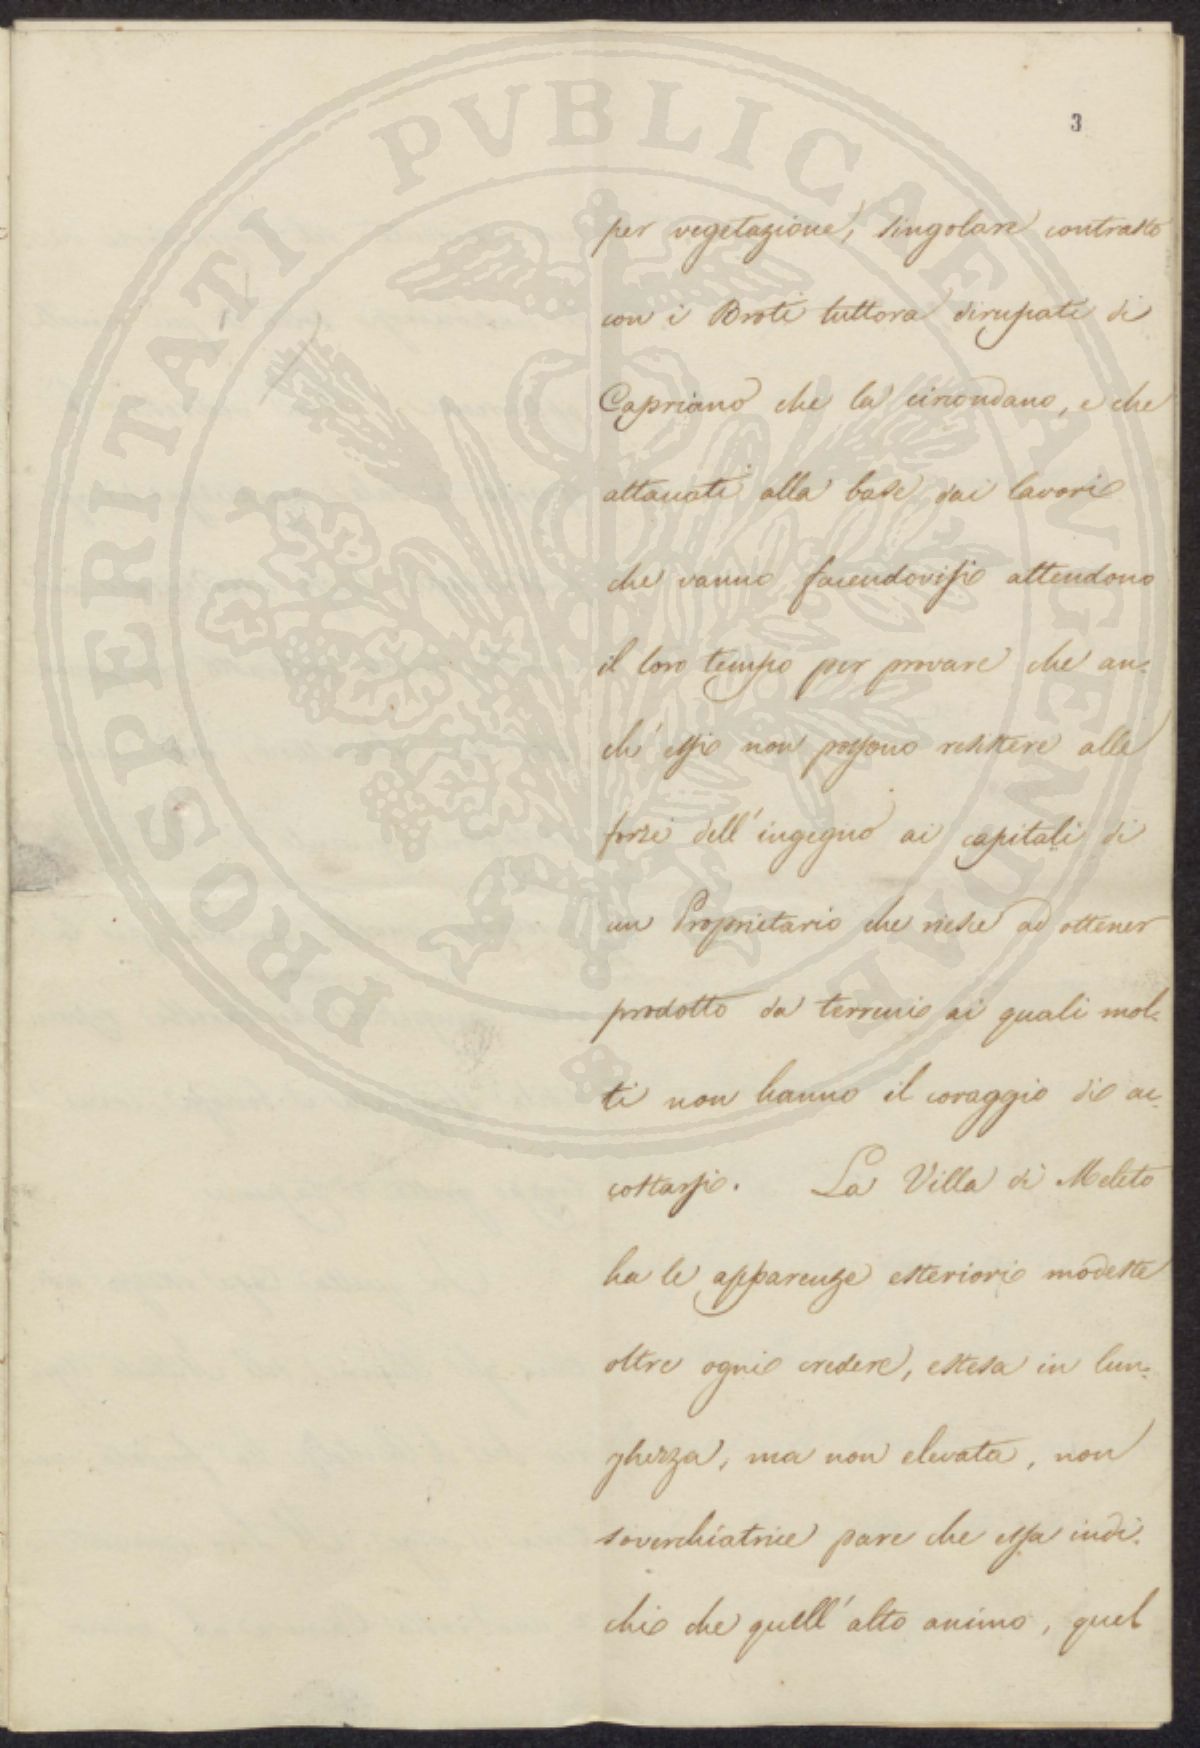 PROSPERITATI PVBLICAE AVGENDAE
3
per vegetazione, singolare contrasto
con i Broti tuttora dirupati di
Capriano che la circondano, e che
attaccati alla base dai lavori
che vanno facendovisi attendono
il loro tempo per provare che an-
ch'essi non possono resistere alle
forze dell'ingegno ai capitali di
un Proprietario che riesce ad ottener
prodotto da terreni ai quali mol-
ti non hanno il coraggio di ac-
costarsi. La Villa di Meleto
ha le apparenze esteriori modeste
oltre ogni credere, estesa in lun-
ghezza, ma non elevata, non
soverchiatrice pare che essa indi-
chi che quell'alto animo, quel